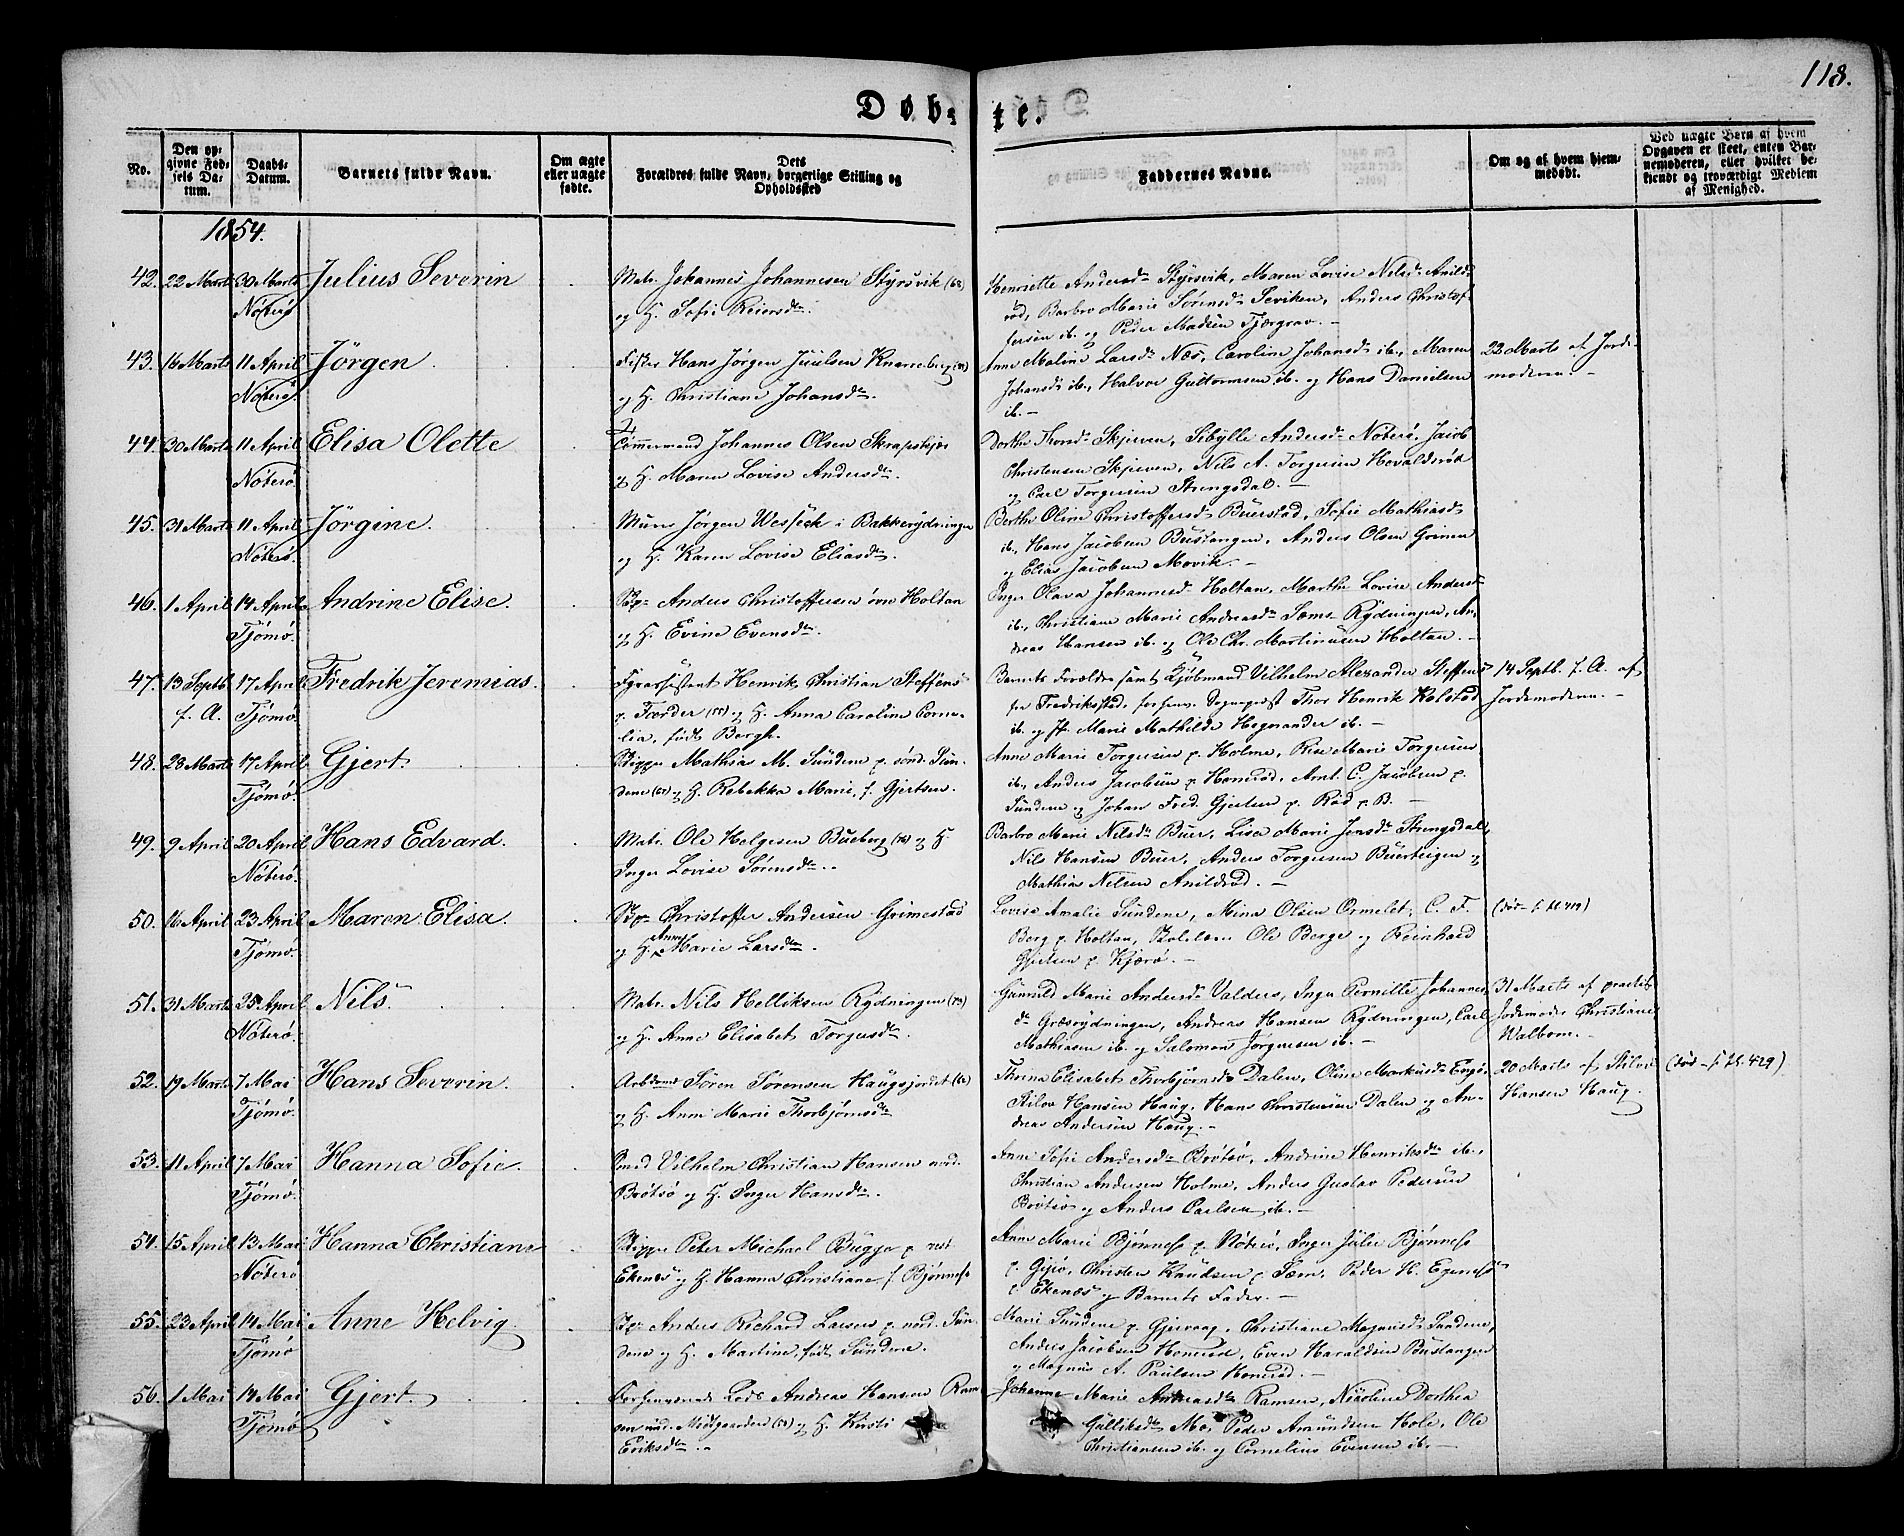 118.
Døbte.
No.
Den opgivne Fødsels Datum.
Daabs-Datum.
Barnets fulde Navn.
Om ægte eller uægte fødte.
Dets Forældres fulde Navn, borgerlige Stilling og Opholdssted
Faddernes Navne.
Om og af hvem hjemmedøbt.
Ved uægte Børn af hvem Opgaven er skeet, enten Barnemoderen, eller hvilket bekjendt og troværdigt Medlem af Menighed.
1854.
42. 22 Marts 30 Marts Nöterö Julius Severin
Matr. Johannes Johannesen Styrsvik (62)
og H. Sofie Reiersdtr.
Henriette Andersd. Styrsvik, Maren Lovise Nilsd. Anild-
röd, Barbro Marie Sörensd. Seviken, Anders Christof-
fersen ib. og Peder Madsen Tjærgrav. —
43. 16 Marts 11 April Nöterö. Jörgen
Fisker Hans Jörgen Juulsen Knarreberg
og H. Christiane Johansdtr.
Anne Maline Larsd. Næs, Caroline Johansd. ib., Maren
Johansd. ib., Halvor Guttormsen ib. og Hans Danielsen
ib. —
22 Marts af Jorde-
moderen. —
44. 30 Marts 11 April Nöterö. Elisa Olette
Tömmermand Johannes Olsen Skrapskjær
og H. Maren Lovise Andersdtr.
Dorthe Thorsd. Skjerven, Sibylle Andersd. Nöterö, Jacob
Christensen Skjerven, Nils A. Torgersen Hovaldsröd
og Carl Torgersen Strengsdal. —
45. 31 Marts 11 April Nöterö. Jörgine.
Murer Jörgen Wesseck i Bakkerydningen
og H. Karen Lovise Eliasdtr.
Berthe Oline Christoffersd. Buerstad, Sofie Mathiasd.
ib., Hans Jacobsen Bustangen, Anders Olsen Grimen
og Elias Jacobsen Movik. —
46. 1 April 14 April Tjömö. Andrine Elise.
Anders Christoffersen övre Holtan
og H. Evine Evensdtr.
Inger Olava Johannesd. Holtan, Marthe Lovise Andersd.
ib., Christiane Marie Andreasd. Sems-Rydningen, An-
dreas Hansen ib. og Ole Chr. Martinusen Holtan. —
47. 13 Septb. f. A. 17 April Tjömö. Fredrik Jeremias.
Fyrassistent Henrik Christian Steffens
p. Færder og H. Anna Caroline Corne-
lia, födt Bergh.
Barnets Forældre samt Kjöbmand Vilhelm Alexander Steffens
fra Fredriksstad, Thor Henrik Kolstad
ib. og Fr. Marie Mathilde Hegermander ib. —
14 Septb. f. A. af
Jordemoderen. —
48. 28 Marts 17 April Tjömö. Gjert.
Skipper Mathias M. Sundene p. sönd. Sun-
dene (62) og H. Rebekka Marie, f. Gjertsen.
Anne Marie Torgersen p. Holme, Marie Torgersen
ib., Anders Jacobsen p. Honeröd, Arnt. C. Jacobsen p.
Sundene og Johan Fred. Gjertsen p. Röd p. B. —
49. 9 April 20 April Nöterö. Hans Edvard.
Matr. Ole Helgesen Bueberg og H.
Inger Lovise Sörensdtr.
Barbro Marie Nilsd. Buer, Lise Marie Jensd. Strengsdal,
Nils Hansen Buer, Anders Torgersen Buersteigen og
Mathias Nilsen Anildröd. —
50. 16 April 23 April Tjömö. Maren Elisa.
Christoffer Andersen Grimestad
og H. Anne Marie Larsdtr.
Lovise Amalie Sundene, Mina Olsen Ormelet, C. F.
Berg p. Holtan, Ole Berge og Reinhard
Gjertsen p. Kjærö. —
(död — f. 419)
51. 31 Marts 25 April Nöterö. Nils.
Matr. Nils Helliksen Rydningen
og H. Anne Elisabet Torgersdtr.
Gunnild Marie Andersd. Valders, Inger Pernille Johannes-
d. Græsrydningen, Andreas Hansen Rydningen, Carl
Mathiasen ib. og Salomon Jörgensen ib. —
31 Marts af
Jordemoder Christiane
Walbom. —
52. 19 Marts 7 Mai Tjömö. Hans Severin.
Arbdsmd. Sören Sörensen Haugsjordet (62)
og H. Anne Marie Thorbjörnsdtr.
Thorine Elisabet Thorbjörnsd. Dalen, Oline Markusd. Engö,
Hansen Haug, Hans Christensen Dalen og An-
dreas Andersen Haug. —
20 Marts af
Hansen Haug.
(död — f. 429)
53. 11 April 7 Mai Tjömö. Hanna Sofie.
Smed Vilhelm Christian Hansen nord.
Brötsö og H. Inger Hansdtr.
Anne Sofie Andersd. Brötsö, Andrine Henriksd. ib.,
Christian Andersen Holme, Anders Gustav Pedersen
Brötsö og Anders Carlsen ib. —
54. 15 April 13 Mai Nöterö Hanna Christiane
Skipper Peter Michael Bugge p. vest.
Ekenes og H. Hanna Christiane f. Bjönnese
Anne Marie Bjönnese p. Nöterö, Inger Julie Bjönnese
p. Gyiö, Christen Knudsen p. Sæm, Peder H. Egenes
p. Ekenæs og Barnets Fader. —
55. 23 April 14 Mai Tjömö Anne Helvig.
Anders Richard Larsen p. nord. Sun-
dene og H. Martine, födt Sundene.
Marie Sundene p. Gjervaag, Christiane Magnusd. Sundene,
Anders Jacobsen Honeröd, Even Haraldsen Bustangen
og Magnus A. Paulsen Honeröd. —
56. 1 Mai 14 Mai Tjömö. Gjert.
Forhenværende Lods Andreas Hansen Ram-
sen und. Mödgaarden og H. Kirsti
Eriksdtr.
Johanne Marie Andreasd. Ramsen, Nicoline Dorthea
Gulliksd. Mo, Peder Amundsen Hole, Ole
Christiansen ib. og Cornelius Evensen ib. —